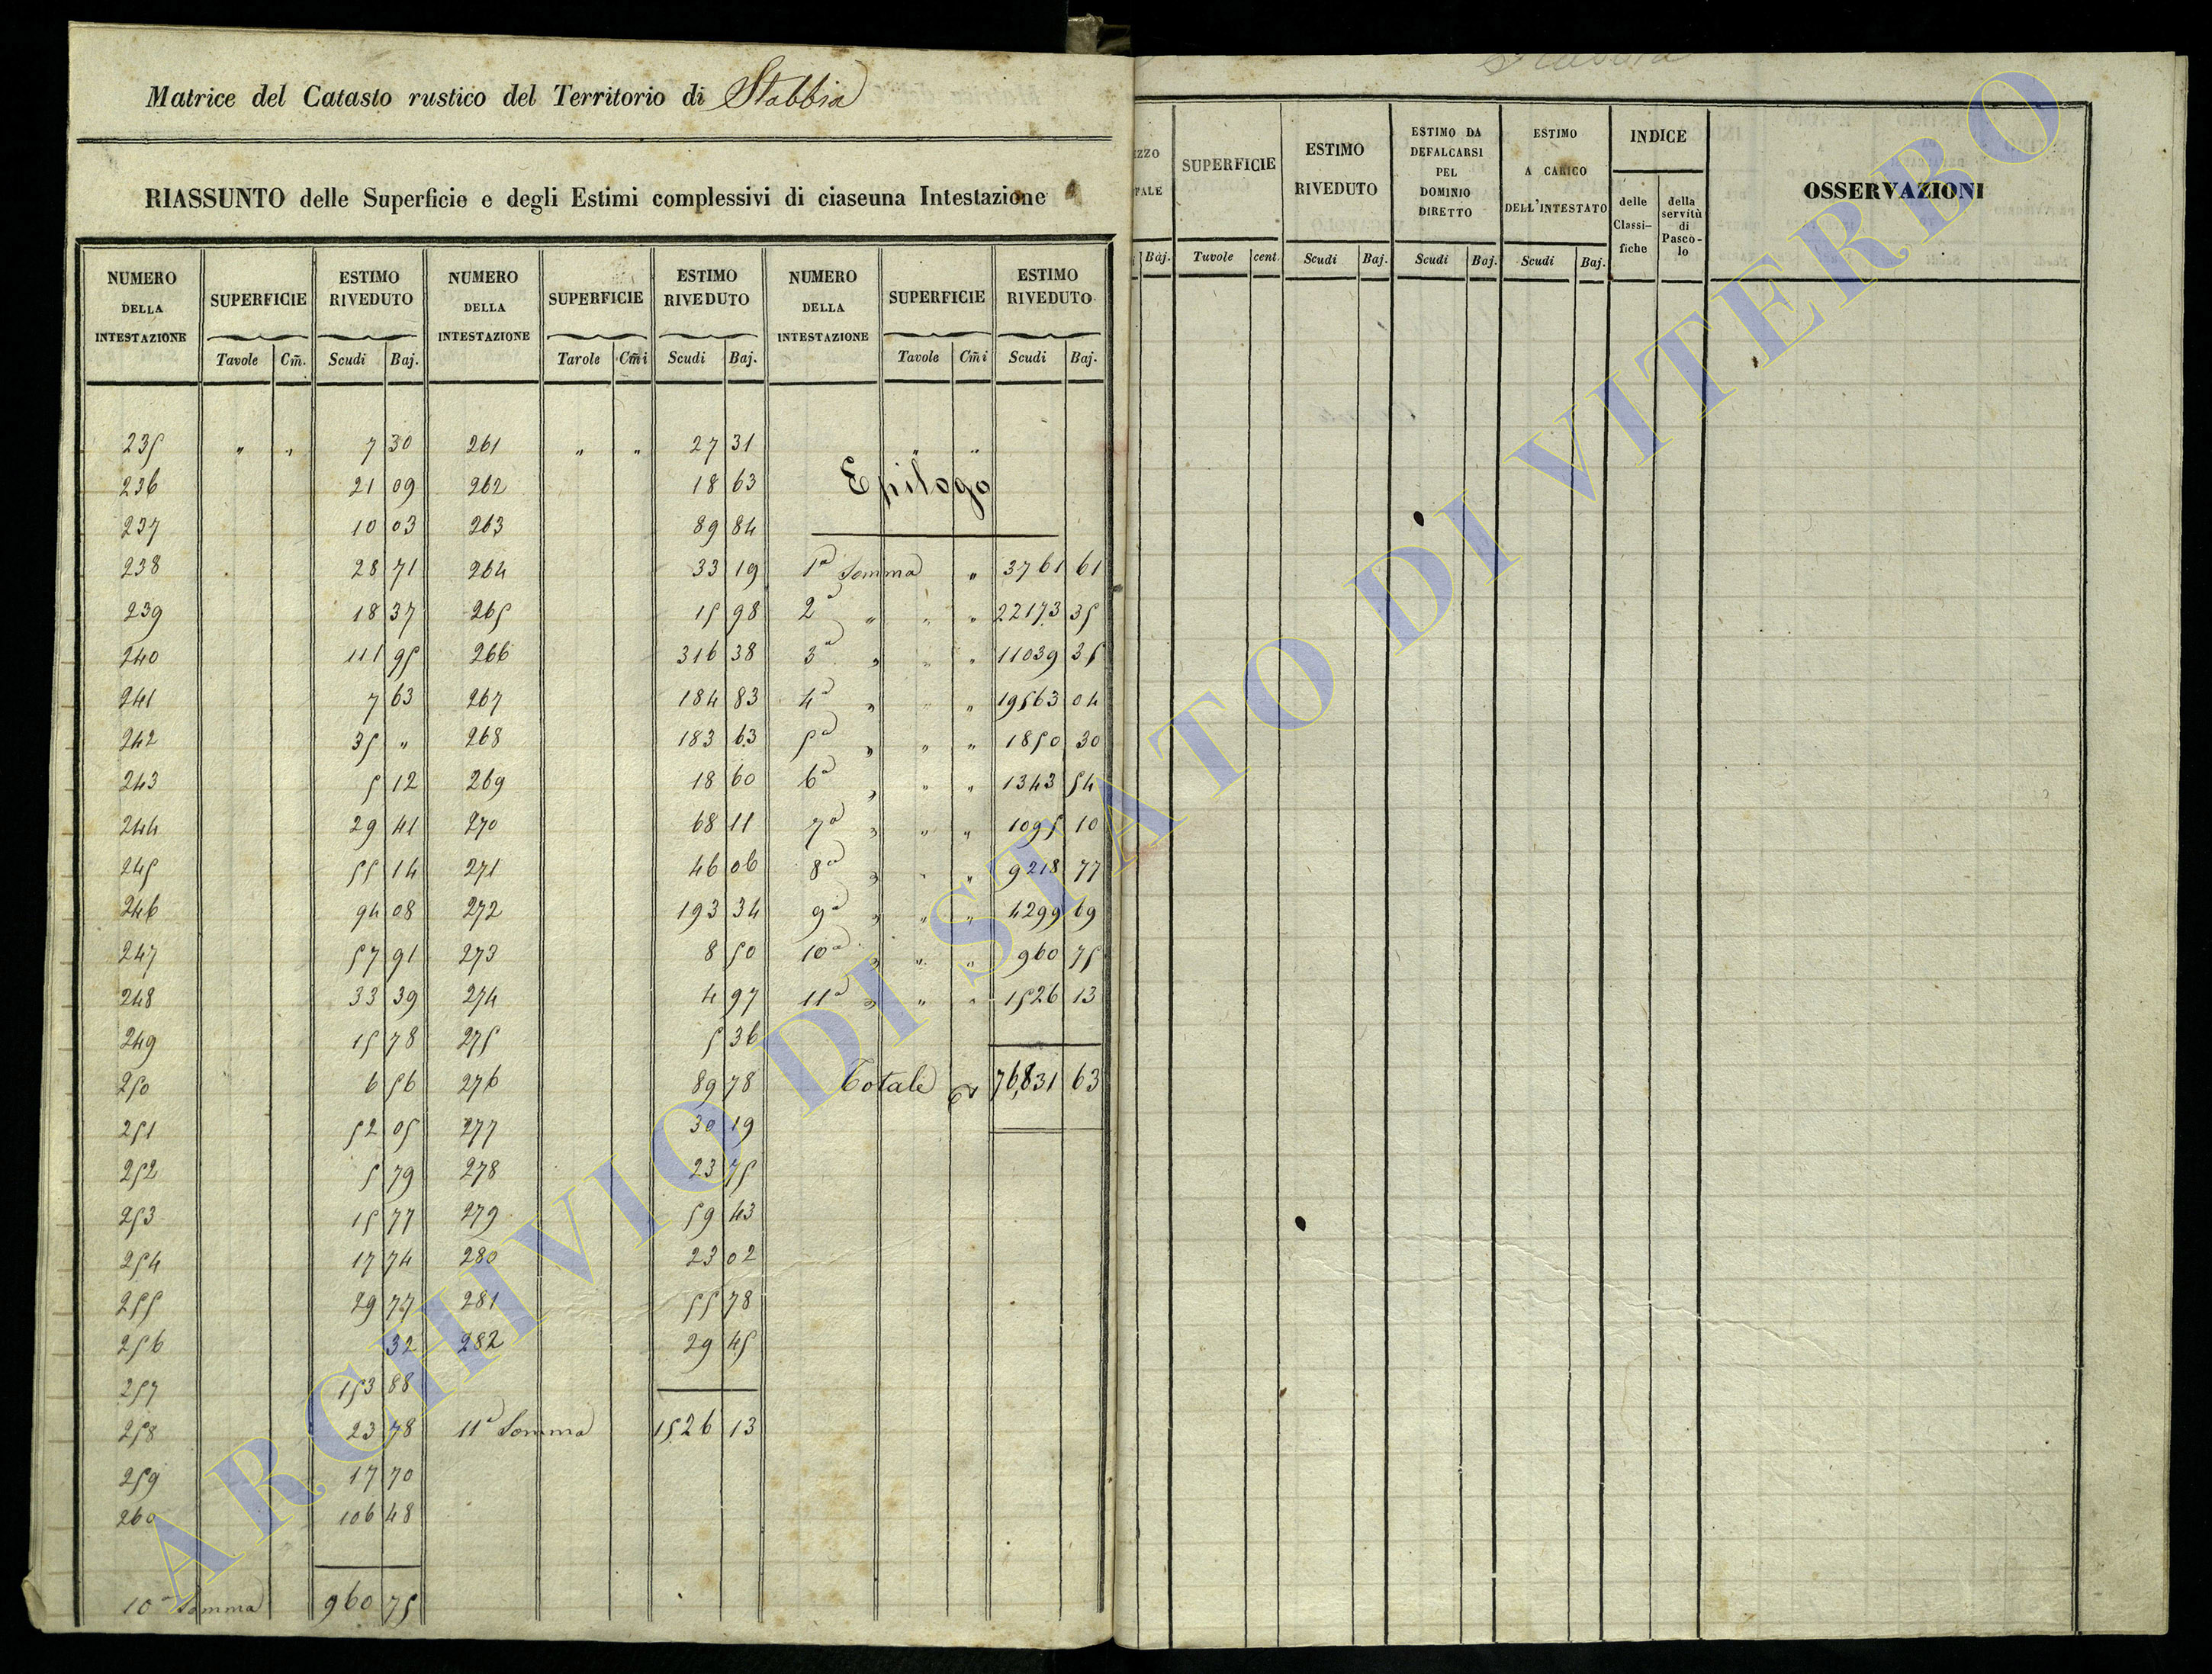 Matrice del Catasto rustico del Territorio di Stabbia
RIASSUNTO delle Superficie e degli Estimi complessivi di ciaseuna Intestazione
NUMERO DELLA INTESTAZIONE SUPERFICIE ESTIMO RIVEDUTO NUMERO DELLA INTESTAZIONE SUPERFICIE ESTIMO RIVEDUTO NUMERO DELLA INTESTAZIONE SUPERFICIE ESTIMO RIVEDUTO
Tavole Cm̃. Scudi Baj. Tarole Cm̃i Scudi Baj. Tavole Cm̃i Scudi Baj.
235 " " 7 30 261 " " 27 31 " "
236 21 09 262 18 63 Epilogo
237 10 03 263 89 84
238 28 71 264 33 19 1ª Somma " 3761 61
239 18 37 265 15 98 2ª " " " 22173 35
240 111 95 266 316 38 3ª " " " 11039 35
241 7 63 267 184 83 4ª " " " 19563 04
242 35 " 268 183 63 5ª " " " 1850 30
243 5 12 269 18 60 6ª " " " 1343 54
244 29 41 270 68 11 7ª " " " 1095 10
245 55 14 271 46 06 8ª " " " 9218 77
246 94 08 272 193 34 9ª " " " 4299 69
247 57 91 273 8 50 10ª " " " 960 75
248 33 39 274 4 97 11ª " " " 1526 13
249 15 78 275 5 36
250 6 56 276 89 78 Totale 76,831 63
251 52 05 277 30 19
252 5 79 278 23 75
253 15 77 279 59 43
254 17 74 280 23 02
255 29 77 281 55 78
256 32 282 29 45
257 153 88
258 23 78 11ª Somma 1526 13
259 17 70
260 106 48
10ª Somma 960 75
IZZO SUPERFICIE ESTIMO RIVEDUTO ESTIMO DA DEFALCARSI PEL DOMINIO DIRETTO ESTIMO A CARICO DELL'INTESTATO INDICE OSSERVAZIONI
delle Classi-fiche della servitù di Pasco-lo
Baj. Tuvole cent. Scudi Baj. Scudi Baj. Scudi Baj.
ARCHIVIO DI STATO DI VITERBO